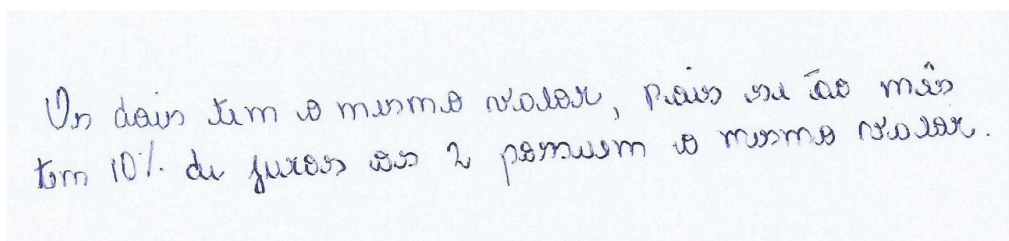 Os dois tem o mesmo valor, pois se ao mês
tem 10% de juros os 2 possuem o mesmo valor.